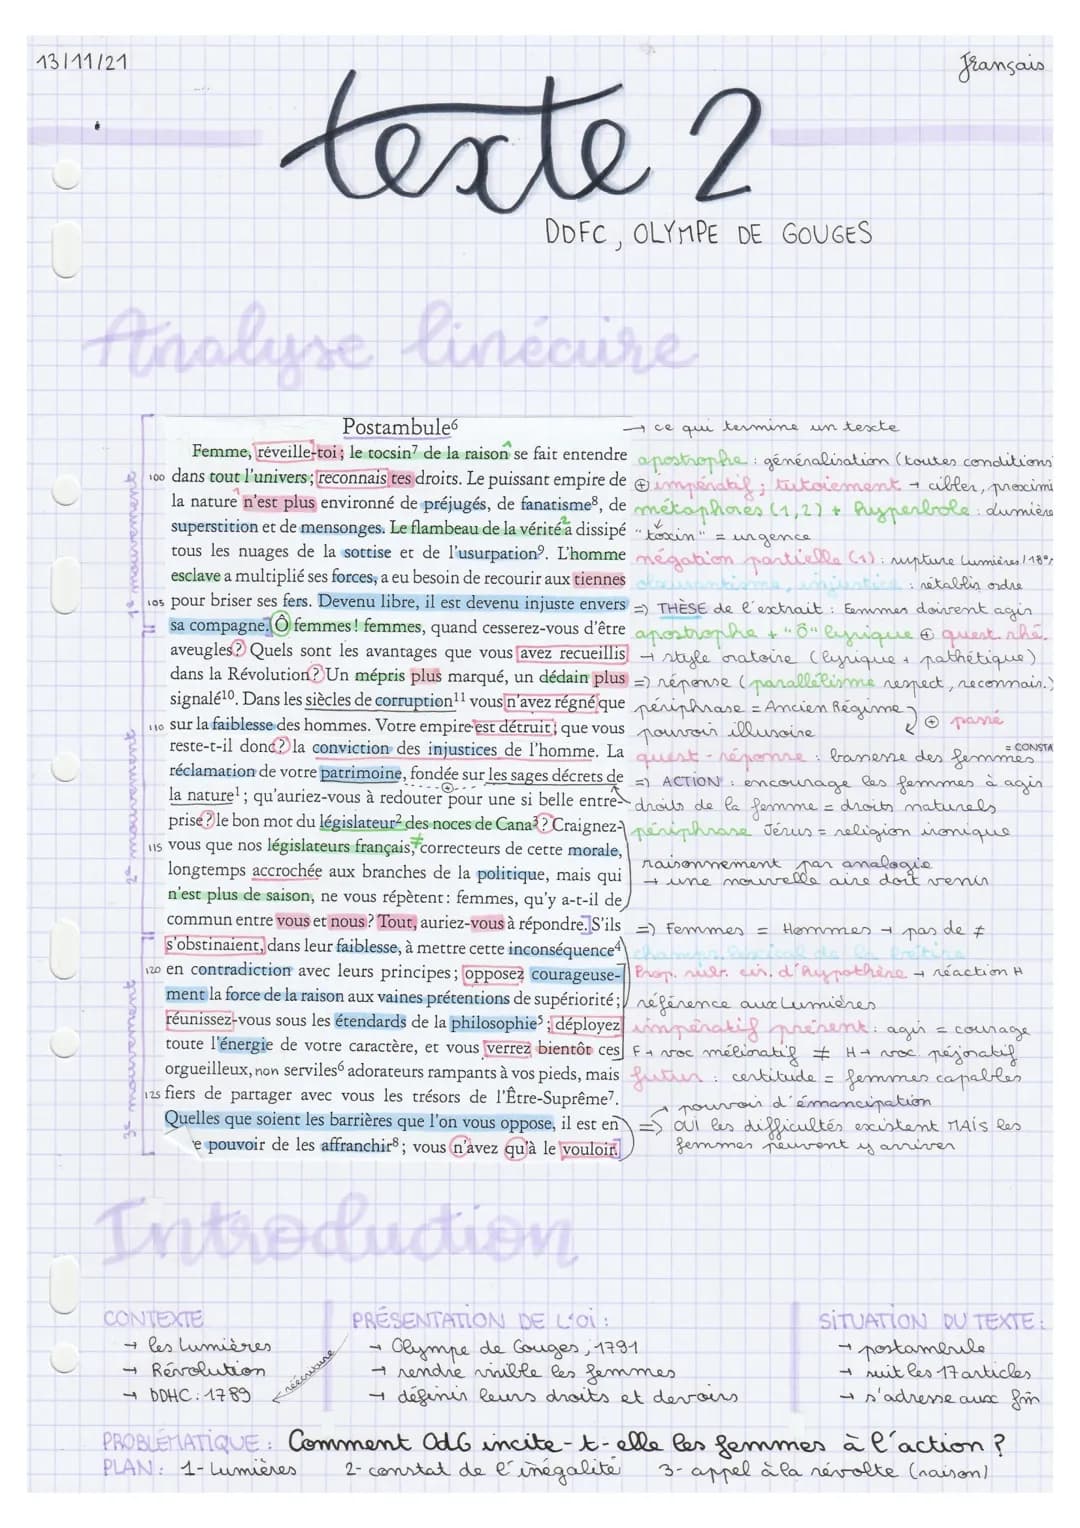 13/11/21
Français
texte 2
DDFC, OLYMPE DE GOUGES
Analyse linéaire
Postambule⁶ → ce qui termine un texte
Femme, réveille-toi ; le tocsin⁷ de la raison se fait entendre apostrophe : généralisation (toutes conditions
100 dans tout l'univers ; reconnais tes droits. Le puissant empire de ⊕ impératif ; tutoiement → cibler, proximi
la nature n'est plus environné de préjugés, de fanatisme⁸, de métaphores (1,2) + hyperbole : lumière
superstition et de mensonges. Le flambeau de la vérité a dissipé "toxin" = urgence
tous les nuages de la sottise et de l'usurpation⁹. L'homme négation partielle (1) : rupture Lumières/18e
esclave a multiplié ses forces, a eu besoin de recourir aux tiennes obscurantisme, injustice : rétablir ordre
105 pour briser ses fers. Devenu libre, il est devenu injuste envers => THÈSE de l'extrait : Femmes doivent agir
sa compagne. Ô femmes ! femmes, quand cesserez-vous d'être apostrophe + "Ô" lyrique ⊕ quest. rhé.
aveugles ? Quels sont les avantages que vous avez recueillis → style oratoire (lyrique + pathétique)
dans la Révolution ? Un mépris plus marqué, un dédain plus => réponse (parallélisme respect, reconnais.)
signalé¹⁰. Dans les siècles de corruption¹¹ vous n'avez régné que périphrase = Ancien Régime
110 sur la faiblesse des hommes. Votre empire est détruit ; que vous pouvoir illusoire ⊕ passé
reste-t-il donc ? la conviction des injustices de l'homme. La quest-réponse : bassesse des femmes = CONSTA
réclamation de votre patrimoine, fondée sur les sages décrets de => ACTION : encourage les femmes à agir
la nature¹ ; qu'auriez-vous à redouter pour une si belle entre- droits de la femme = droits naturels
prise ? le bon mot du législateur² des noces de Cana³ ? Craignez- périphrase Jésus = religion ironique
115 vous que nos législateurs français, ≠ correcteurs de cette morale, raisonnement par analogie
longtemps accrochée aux branches de la politique, mais qui → une nouvelle aire doit venir
n'est plus de saison, ne vous répètent : femmes, qu'y a-t-il de
commun entre vous et nous ? Tout, auriez-vous à répondre. S'ils => Femmes = Hommes → pas de ≠
s'obstinaient, dans leur faiblesse, à mettre cette inconséquence⁴ champ lexical de la bêtise
120 en contradiction avec leurs principes ; opposez courageuse- Prop. sub. cir. d'hypothèse → réaction H
ment la force de la raison aux vaines prétentions de supériorité ; référence aux Lumières
réunissez-vous sous les étendards de la philosophie⁵ ; déployez impératif présent : agir = courage
toute l'énergie de votre caractère, et vous verrez bientôt ces F → voc mélioratif ≠ H → voc. péjoratif
orgueilleux, non serviles⁶ adorateurs rampants à vos pieds, mais futur : certitude = femmes capables
125 fiers de partager avec vous les trésors de l'Être-Suprême⁷. → pouvoir d'émancipation
Quelles que soient les barrières que l'on vous oppose, il est en => OUI les difficultés existent MAIS les
e pouvoir de les affranchir⁸ ; vous n'avez qu'à le vouloir. femmes peuvent y arriver
1e mouvement
2e mouvement
3e mouvement
Introduction
CONTEXTE
→ les Lumières
→ Révolution
→ DDHC : 1789
réécriture
PRÉSENTATION DE L'OI :
→ Olympe de Gouges, 1791
→ rendre visible les femmes
→ définir leurs droits et devoirs
SITUATION DU TEXTE :
→ postambule
→ suit les 17 articles
→ s'adresse aux fm
PROBLÉMATIQUE : Comment OdG incite-t-elle les femmes à l'action ?
PLAN : 1- Lumières 2- constat de l'inégalité 3- appel à la révolte (raison)